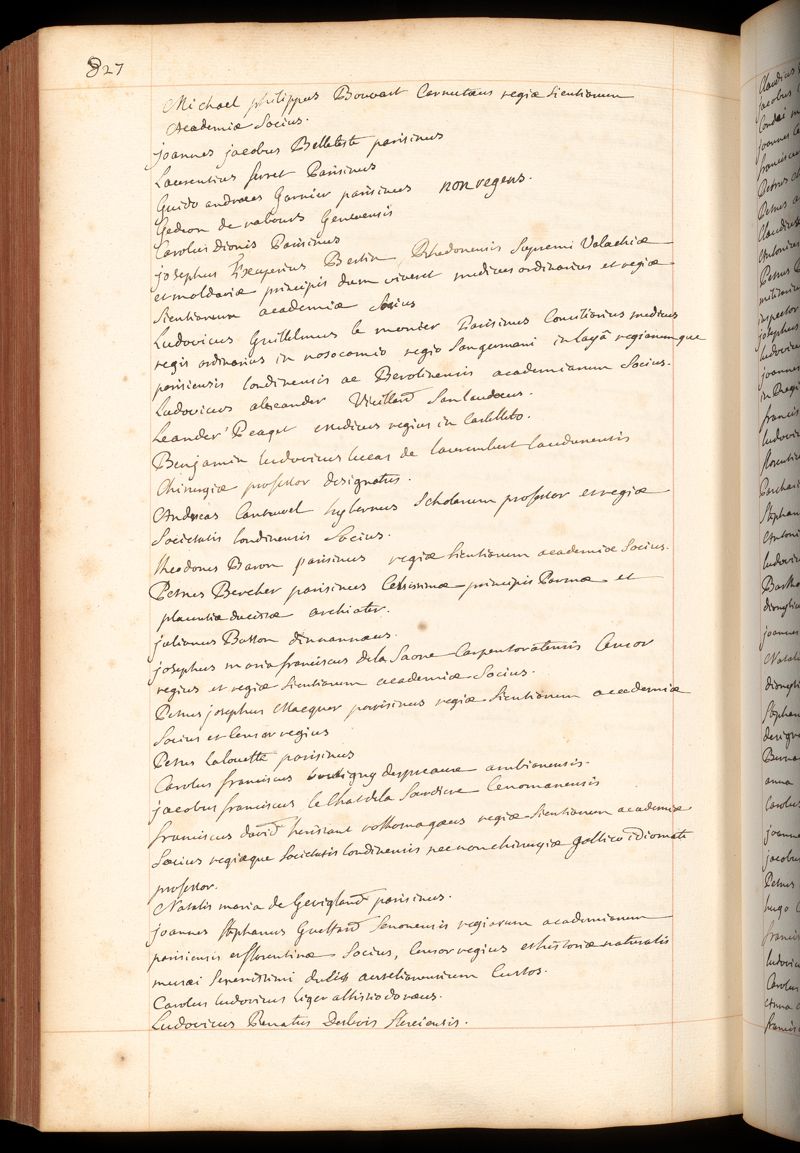 827
Michael philippus Bouvart Carnutaus regiæ sientiarum
Academiæ Socius.
joannes jacobus Belleteste parisinus
Laurentius ferret Parisinus
Guido andreas Garnier parisinus non regens.
Gedeon de rabours Genevensis
Carolus dionis Parisinus
josephus Exuperius Bertin, Rhedonensis Supremi Valachiæ
et moldaviæ principis dum viveret medicus ordinarius et regiæ
Sientiarum academiæ Socius
Ludovicus Guillelmus le monier Parisinus Consiliarius medicus
regis ordinarius in nosocomio regio Sangermani in laya regiarumque
parisiensis londinensis ac Berolinensis academiarum Socius.
Ludovicus alexander Vieillard Sanlaudæus.
Leander Peaget medicus regius in Castelleto.
Benjamin ludovicus lucas de laurembert laudunensis
Chirurgiæ professor designatus.
Andreas Cantwel hybernus Scholarum professor et regiæ
Societatis londinensis Socius.
theodorus Baron parisinus regiæ sientiarum academiæ Socius.
Petrus Bercher parisinus Celsissimæ principis Parmæ et
placentiæ ducissæ archiater.
julianus Busson dinannæus.
josephus maria franciscus de la Saone Carpentoratensis Censor
regius et regiæ sientiarum academiæ Socius.
Petrus josephus Macquer parisinus regiæ Sientiarum academiæ
Socius et Censor regius
Petrus Lalouette parisinus
Carolus franciscus boutigny despreaux ambianensis.
jacobus franciscus le Chat de la Sourdiere Cenomanensis
franciscus david herissant rothomagæus regiæ Sientiarum academiæ
Socius regiæque Societatis londinensis nec non chirurgiæ gallico idiomate
professor.
Natalis maria de Gevigland parisinus.
joannes Stephanus Guettard Senonensis regiarum academiarum
parisiensis et florentinæ Socius, Censor regius et historiæ naturalis
musæi Serenissimi ducis aurelianensium Custos.
Carolus ludovicus Liger altissiodoræus.
Ludovicus Renatus Desbois